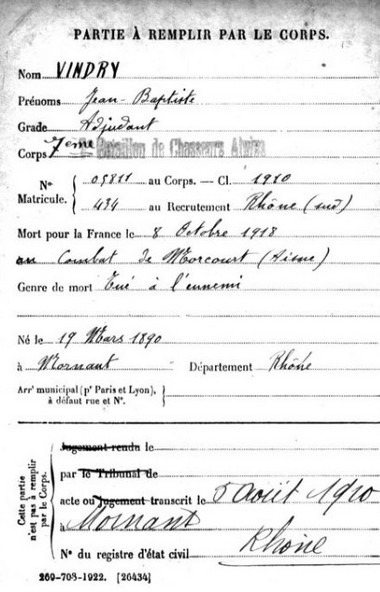 PARTIE À REMPLIR PAR LE CORPS.
Nom VINDRY
Prénoms Jean-Baptiste
Grade Adjudant
Corps 7eme Bataillon de Chasseurs Alpins
N° Matricule. { 05811 au Corps. — Cl. 1910
434 au Recrutement Rhône (sud)
Mort pour la France le 8 Octobre 1918
au Combat de Morcourt (Aisne)
Genre de mort Tué à l'ennemi
Né le 19 Mars 1890
à Mornant Département Rhône
Arrt municipal (pr Paris et Lyon), à défaut rue et N°. }
Cette partie n'est pas à remplir par le Corps.
Jugement rendu le
par le Tribunal de
acte ou jugement transcrit le 5 Août 1920
à Mornant
N° du registre d'état civil Rhône
269-708-1922. [26434]